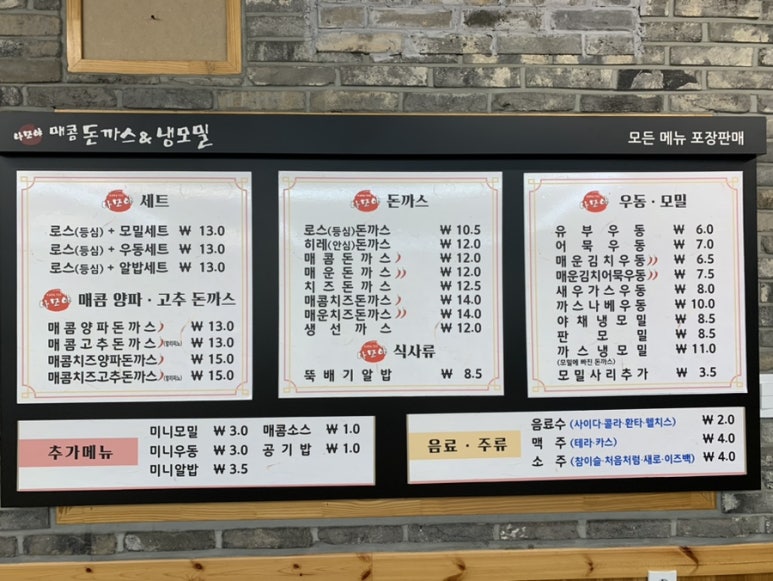 나모야 매콤돈까스&냉모밀
모든 메뉴 포장판매
세트
로스(등심) + 모밀세트 ₩ 13.0
로스(등심) + 우동세트 ₩ 13.0
로스(등심) + 알밥세트 ₩ 13.0
매콤 양파·고추 돈까스
매콤양파돈까스 ₩ 13.0
매콤고추돈까스(할라피뇨) ₩ 13.0
매콤치즈양파돈까스 ₩ 15.0
매콤치즈고추돈까스(할라피뇨) ₩ 15.0
돈까스
로스(등심)돈까스 ₩ 10.5
히레(안심)돈까스 ₩ 12.0
매콤돈까스 ₩ 12.0
매운돈까스 ₩ 12.0
치즈돈까스 ₩ 12.5
매콤치즈돈까스 ₩ 14.0
매운치즈돈까스 ₩ 14.0
생선까스 ₩ 12.0
식사류
뚝배기알밥 ₩ 8.5
우동·모밀
유부우동 ₩ 6.0
어묵우동 ₩ 7.0
매운김치우동 ₩ 6.5
매운김치어묵우동 ₩ 7.5
새우가스우동 ₩ 8.0
까스나베우동 ₩ 10.0
야채냉모밀 ₩ 8.5
판모밀 ₩ 8.5
까스냉모밀 ₩ 11.0
(모밀에 빠진 돈까스)
모밀사리추가 ₩ 3.5
추가메뉴
미니모밀 ₩ 3.0 매콤소스 ₩ 1.0
미니우동 ₩ 3.0 공기밥 ₩ 1.0
미니알밥 ₩ 3.5
음료·주류
음료수 (사이다·콜라·환타·웰치스) ₩ 2.0
맥주 (테라·카스) ₩ 4.0
소주 (참이슬·처음처럼·새로·이즈백) ₩ 4.0